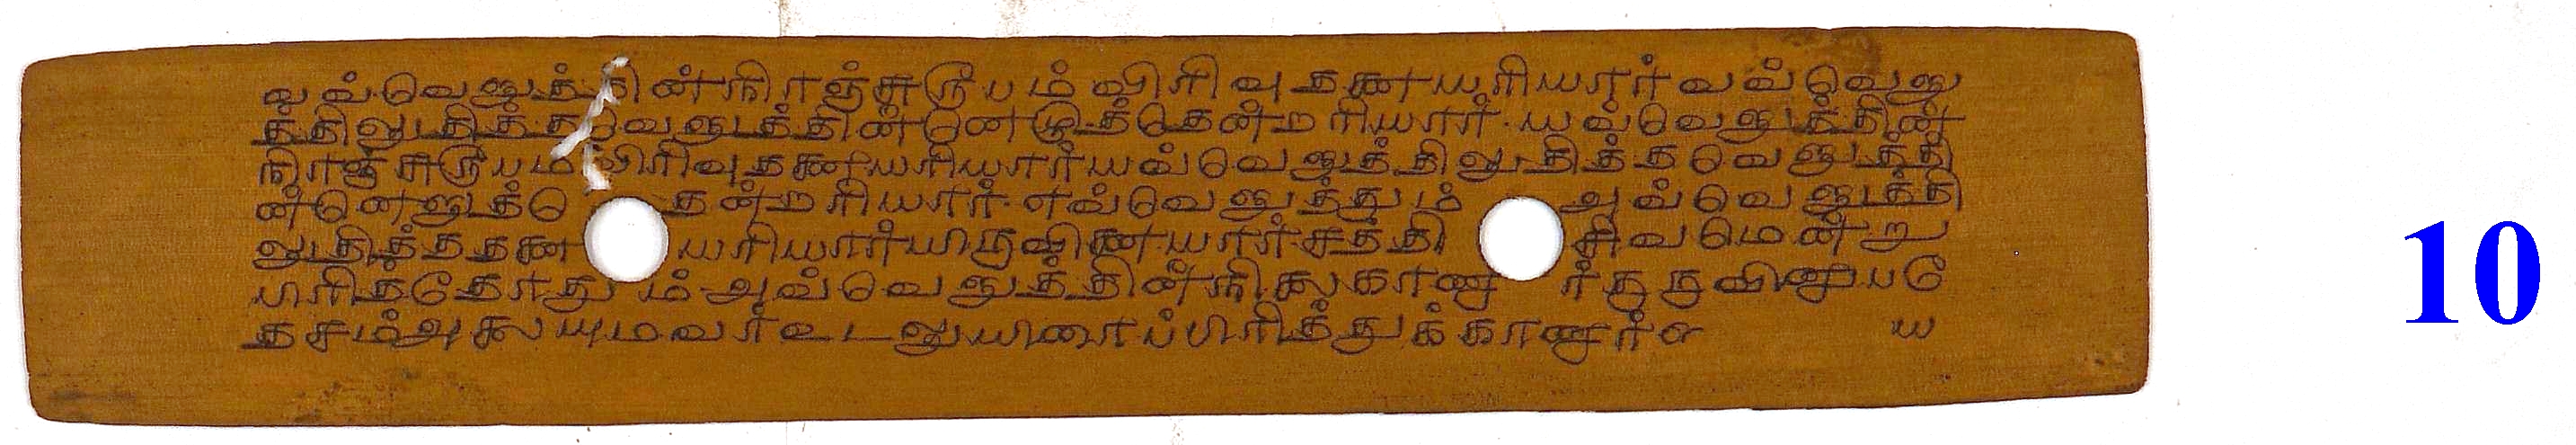 வவ்வெழுத்தின் நிரஞ்சரூபம் விரிவுதனை யரியார் வவ்வெழு
த்திலுதித்த வெழுத்தின்னெழுத்தென்றரியார் யவ்வெழுத்தின்
நிரஞ்சரூபம விரிவுதனை யரியார் யவ்வெழுத்திலுதித்த வெழுத்தி
ன்னெழுத்தென்றரியார் எவ்வெழுத்தும் அவ்வெழுத்தி
லுதித்ததனை யரியார் யிருவினையார் சத்தி சிவமென்று
பிரித்தோதும் அவ்வெழுத்தின் நிலை காணார் குருவினுபதே
தசம் அலயுமவர் உடலுயிரைப் பிரித்துக் காணார் எ ய
10